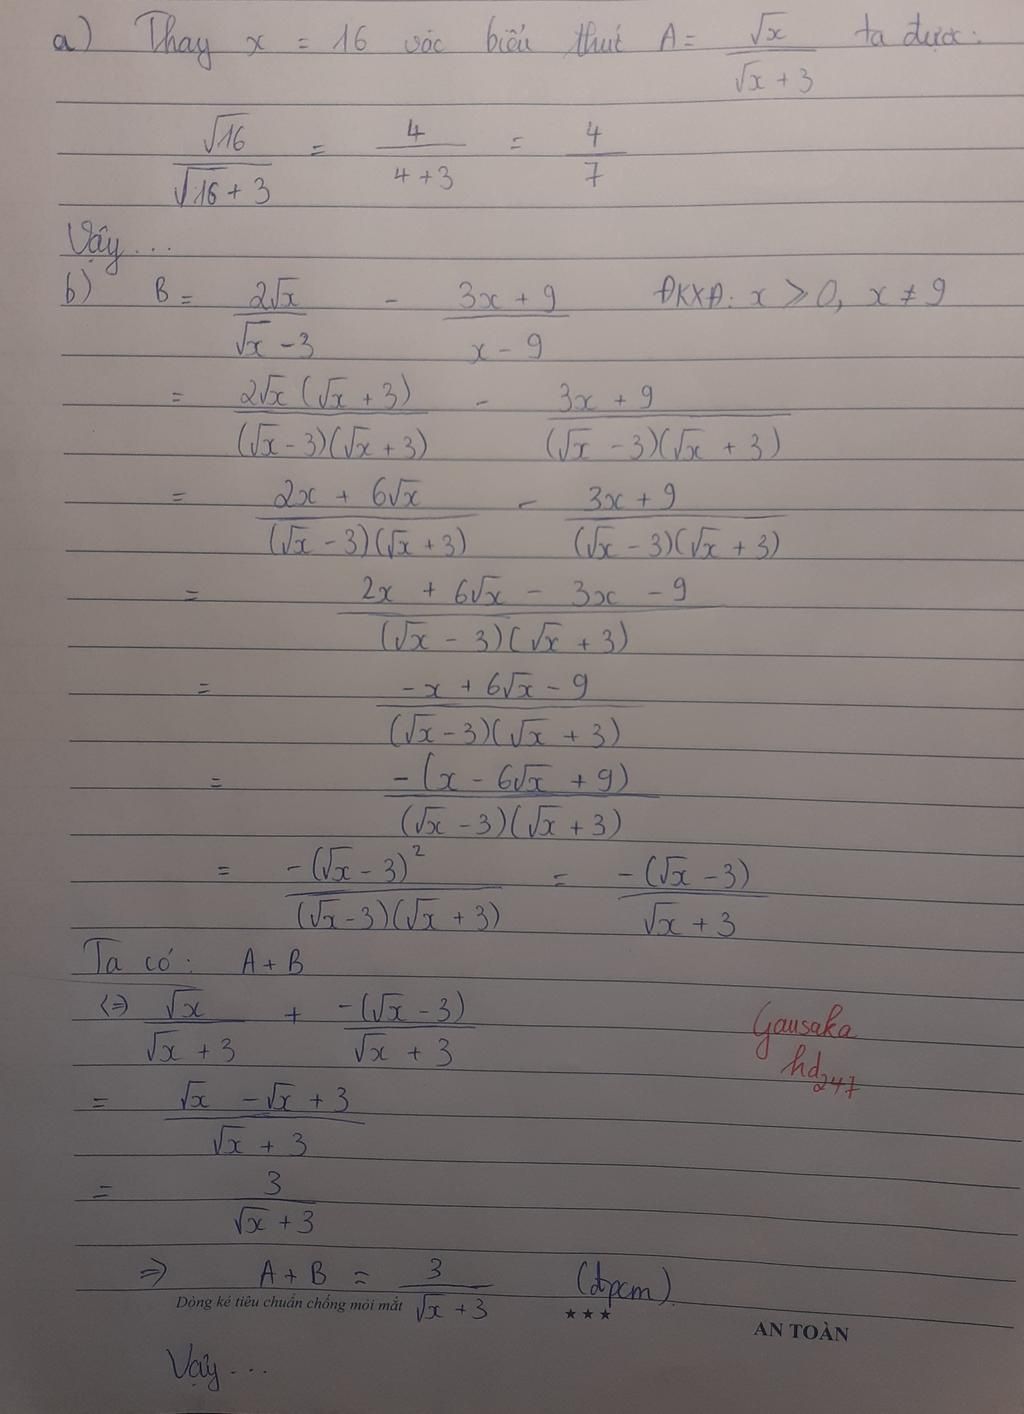 a) Thay x = 16 vào biểu thức A = √x / (√x + 3) ta được:
√16 / (√16 + 3) = 4 / (4 + 3) = 4 / 7
Vậy...
b) B = 2√x / (√x - 3) - (3x + 9) / (x - 9) ĐKXĐ: x ≥ 0, x ≠ 9
= 2√x (√x + 3) / (√x - 3)(√x + 3) - (3x + 9) / (√x - 3)(√x + 3)
= (2x + 6√x) / (√x - 3)(√x + 3) - (3x + 9) / (√x - 3)(√x + 3)
= (2x + 6√x - 3x - 9) / (√x - 3)(√x + 3)
= (-x + 6√x - 9) / (√x - 3)(√x + 3)
= -(x - 6√x + 9) / (√x - 3)(√x + 3)
= -(√x - 3)² / (√x - 3)(√x + 3) = -(√x - 3) / (√x + 3)
Ta có: A + B
<=> √x / (√x + 3) + -(√x - 3) / (√x + 3)
Gausaka
hd247
= (√x - √x + 3) / (√x + 3)
= 3 / (√x + 3)
=> A + B = 3 / (√x + 3) (đpcm).
Dòng kẻ tiêu chuẩn chống mỏi mắt ★★★ AN TOÀN
Vậy...